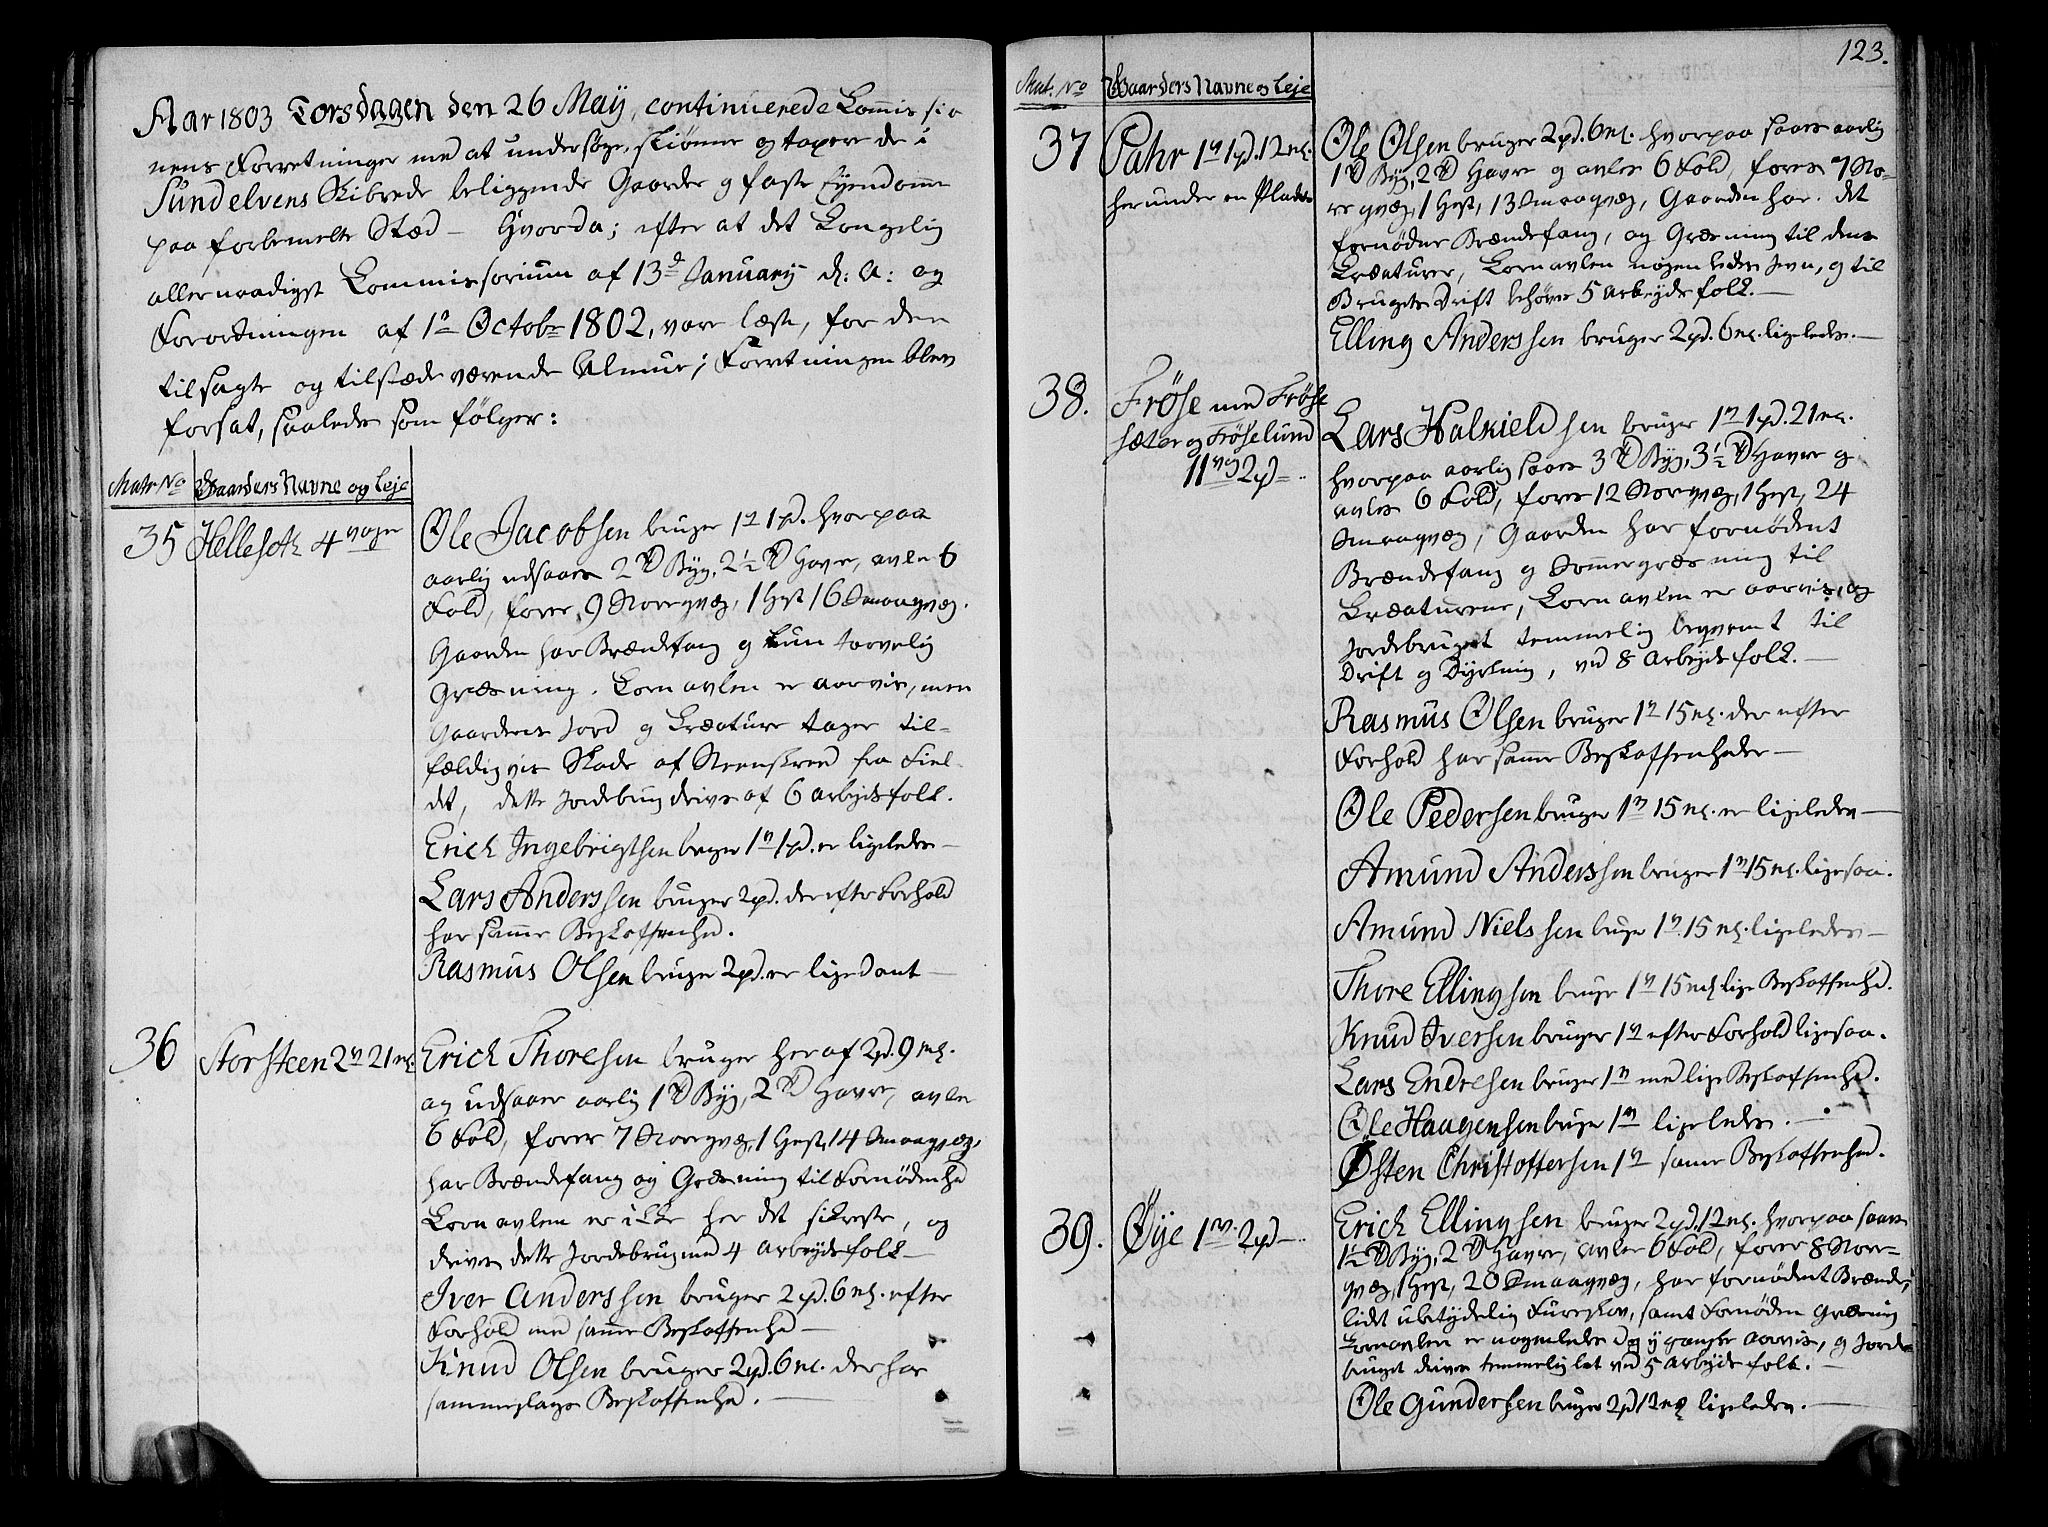 Aar 1803 Torsdagen den 26 May, continuerede Commissio
nens Forretninger med at undersøge, skiønne og taxere de i
Sundelvens Skibrede beliggende Gaarde og faste Ejendomme
paa forbemelte Stæd – Hvorda; efter at det Kongelig
allernaadigst Commissorium af 13d January d: A: og
Forordningen af 1e Octobr 1802, vare læste, for den
tilsagte og tilstædeværende Almue; Forretningen blev
forsat, saaledes som følger:
Matr No Gaarders Navne og Leje
35 Hellesøth 4 voger
Ole Jacobsen bruger 1v 1pd. hvorpaa
aarlig udsaaes 2 Td Byg, 2½ Td Havre, avle 6
Fold, foder 9 Storeqvæg, 1 Hest 16 Smaaqvæg.
Gaarden har Brændefang og kun tarvelig
Græsning. Kornavlen er aarvis, men
Gaardens Jord og Creature tager til-
fældigvis Skade af Steenskred fra Fiel-
det, dette Jordebrug drives af 6 arbejdsfolk.
Erich Ingebrigtsen bruger 1v 1pd. er ligeledes –
Lars Anderssen bruger 2pd. der efter Forhold
har samme Beskaffenhed.
Rasmus Olsen bruger 2pd. er ligedant –
36 Storsteen 2v 21 mk.
Erich Thoresen bruger heraf 2pd. 9 mk.
og udsaaer aarlig 1 Td Byg, 2 Td Havre, avler
6 Fold, foder 7 Storeqvæg, 1 Hest, 14 Smaaqvæg,
har Brændefang og Græsning til Fornødenhed
Kornavlen er ikke her det sikreste, og
drives dette Jordebrug med 4 arbejdsfolk –
Iver Anderssen bruger 2pd. 6 mk. efter
Forhold med samme Beskaffenhed –
Knud Olsen bruger 2pd. 6 mk. der har
sammeslags Beskaffenhed. –
123.
Mat. No Gaarders Navne og Leje
37 Pahr 1v 1pd. 12 mk.
herunder en Plads
Ole Olsen bruger 2pd. 6 mk. hvorpaa saaes aarlig
1 Td Byg, 2 Td Havre og avles 6 Fold, fores 7 Sto-
reqvæg, 1 Hest, 13 Smaaqvæg, Gaarden har det
fornødne Brændefang, og Græsning til dens
Creaturer, Kornavlen nogenledes Jevn, og til
Brugets Drift behøves 5 arbejdsfolk. –
Elling Anderssen bruger 2pd. 6 mk. ligeledes. –
38. Frøse med Frøse
sæter og Frøselund
11 vog 2pd –
Lars Halkieldsen bruger 1v 1pd. 21 mk.
hvorpaa aarlig saaes 3 Td Byg, 3½ Td Havre og
avles 6 Fold, fores 12 Storqvæg, 1 Hest, 24
Smaaqvæg, Gaarden har fornødent
Brændefang og Sommergræsning til
Creaturene, Kornavlen er aarvis, og
Jordebruget temmelig beqvemt til
Drift og Dyrkning, ved 8 arbejdsfolk. –
Rasmus Olsen bruger 1v 15 mk. der efter
Forhold har samme Beskaffenheder –
Ole Pedersen bruger 1v 15 mk. er ligeledes –
Amund Anderssen bruger 1v 15 mk. ligesaa.
Amund Nielssen bruger 1v. 15 mk. ligeledes –
Thore Ellingsen bruger 1v 15 mk lige Beskaffenhed.
Knud Iversen bruger 1v efter Forhold ligesaa.
Lars Endresen bruger 1v med lige Beskaffenhed.
Ole Haagensen bruger 1v ligeledes. –
Østen Christoffersen 1v samme Beskaffenhed.
39. Øye 1v. 2pd –
Erich Ellingsen bruger 2pd. 12 mk. hvorpaa saaes
1½ Td Byg, 2 Td Havre, avler 6 Fold, foder 8 Store-
qvæg, 1 Hest, 20 Smaaqvæg, har fornødent Brænde,
lidet ubetydelig Fureskov, samt Fornøden Græsning
Kornavlen er nogenledes dog ej ganske aarvis, og Jorde-
bruget drives temmelig let ved 5 arbejdsfolk. –
Ole Gundersen bruger 2pd 12 mk ligeledes. –